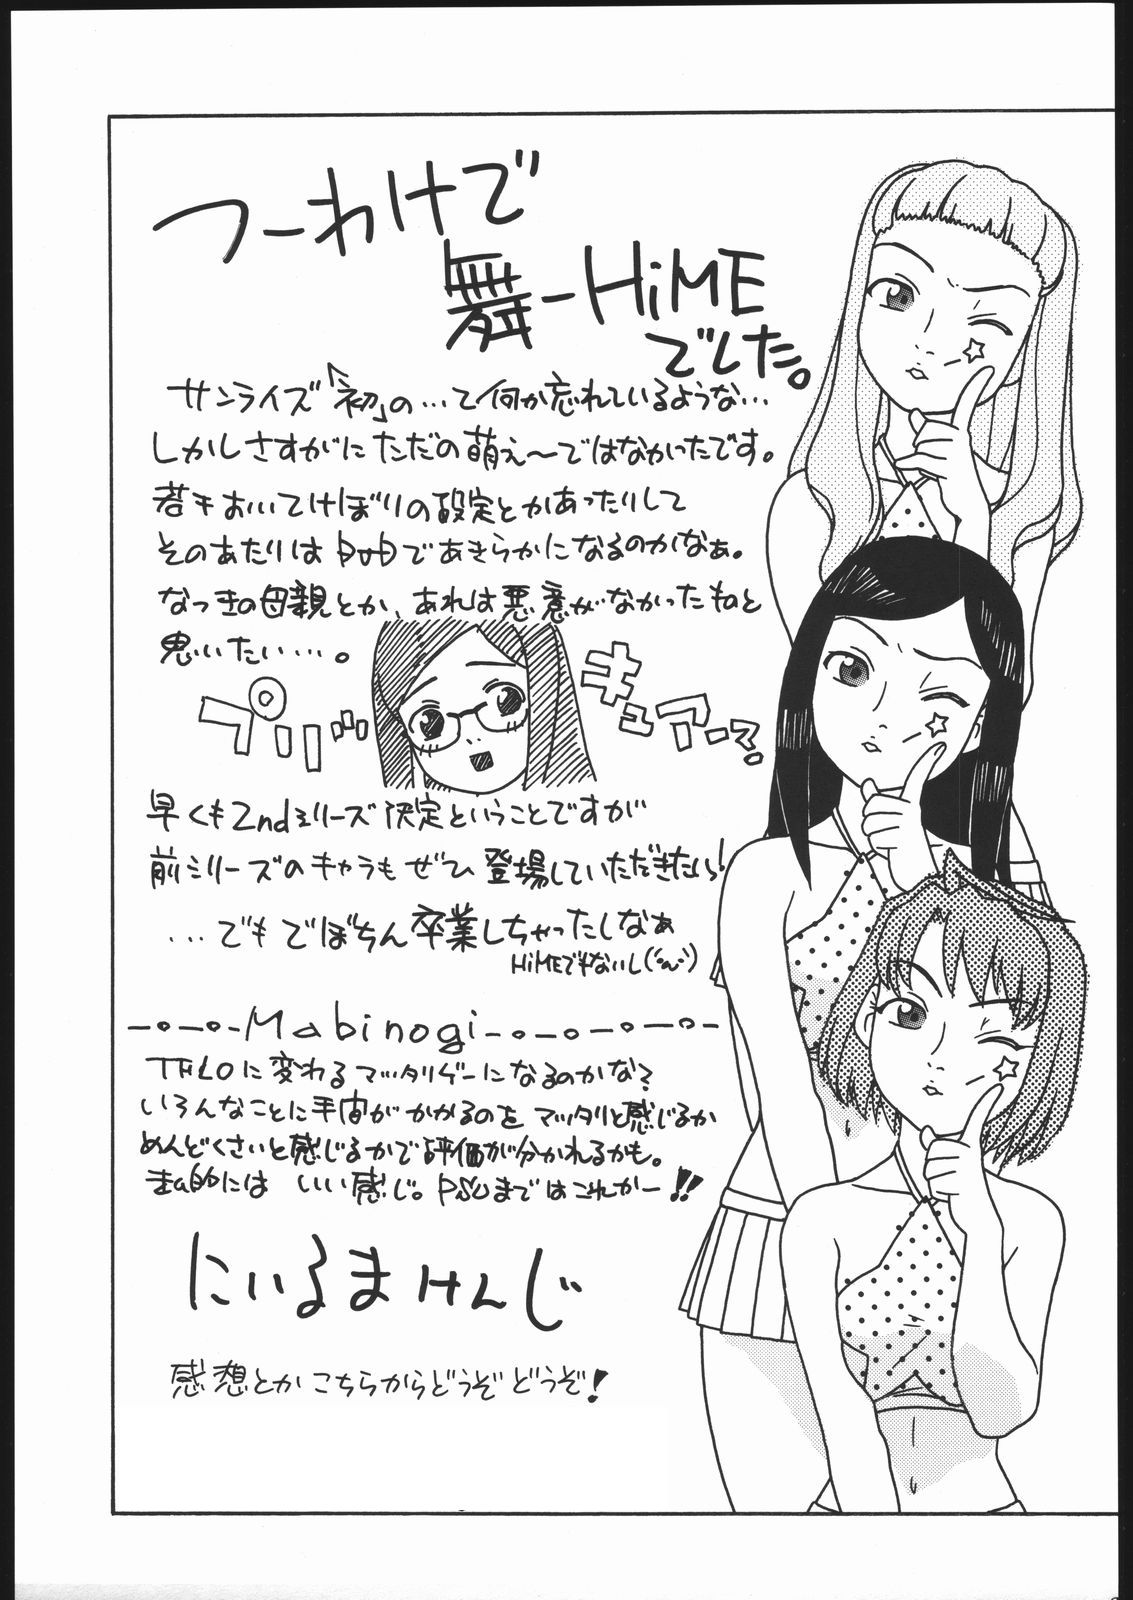 つーわけで
舞-HiME
でした。
サンライズ「初」の…て何か忘れているような…
しかしさすがにただの萌え〜ではなかったです。
若干おいてけぼりの設定とかあったりして
そのあたりはDVDであきらかになるのかなぁ。
なつきの母親とか、あれは悪意がなかったものと
思いたい…。
プリガ
キュアーマ。
早くも2ndシリーズ決定ということですが
前シリーズのキャラもぜひ登場していただきたい!
…でもでぼちん卒業しちゃったしなぁ
HiMEでもないし
-o-o-Mabinogi-o-o-o-o-
TFLOに変わるマッタリゲーになるのかな?
いろんなことに手間がかかるのをマッタリと感じるか
めんどくさいと感じるかで評価が分かれるかも。
まぁ的には いい感じ。PSUまではこれかー!!
にいるまけんじ
感想とかこちらからどうぞどうぞ!